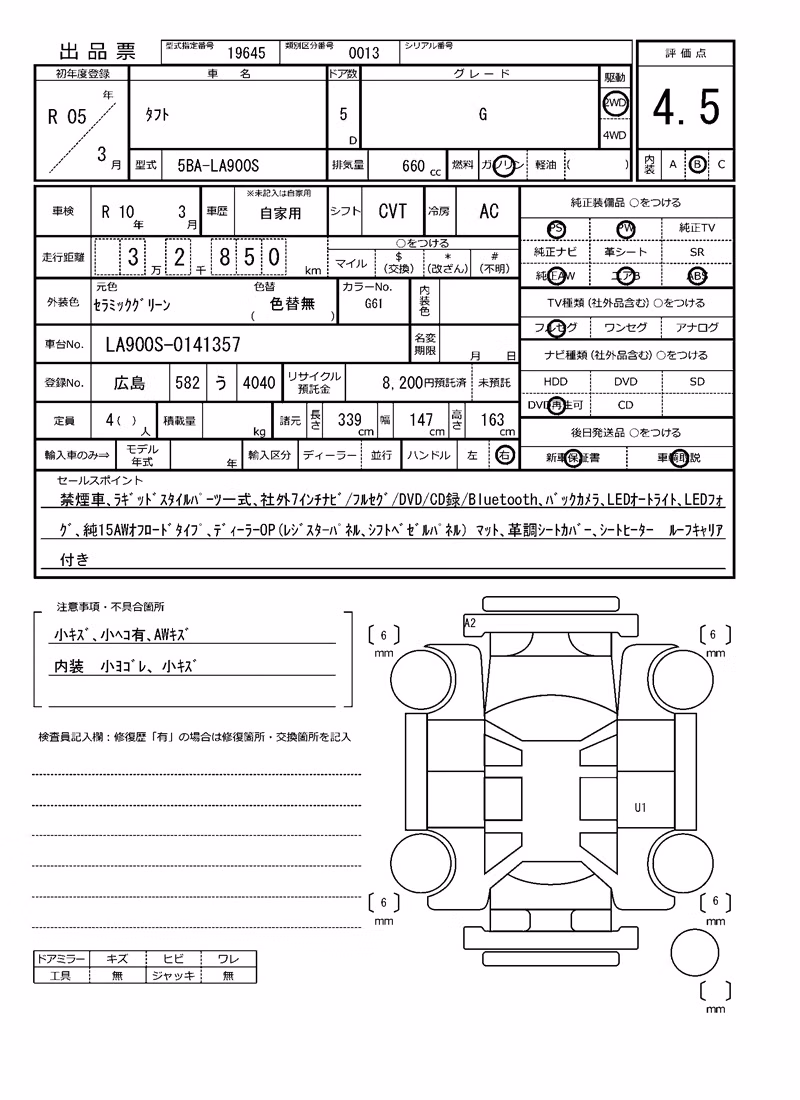 出品票 型式指定番号 19645 類別区分番号 0013 シリアル番号
評価点
初年度登録 車名 ドア数 グレード 駆動
R 05 年 3 月 タフト 5 D G 2WD 4WD
4.5
型式 5BA-LA900S 排気量 660 cc 燃料 ガソリン 軽油 ( )
内装 A B C
車検 R 10 年 3 月 車歴 ※未記入は自家用 自家用 シフト CVT 冷房 AC
純正装備品 ○をつける
PS PW 純正TV
走行距離 3 万 2 千 8 5 0 km ○をつける
マイル $ (交換) * (改ざん) # (不明)
純正ナビ 革シート SR
純正AW エアB ABS
外装色 元色 セラミックグリーン 色替 ( 色替無 ) カラーNo. G61 内装色
TV種類(社外品含む)○をつける
フルセグ ワンセグ アナログ
車台No. LA900S-0141357 名変期限 月 日
ナビ種類(社外品含む)○をつける
登録No. 広島 582 う 4040 リサイクル預託金 8,200円預託済 未預託
HDD DVD SD
DVD再生可 CD
定員 4( ) 人 積載量 kg 諸元 長さ 339 cm 幅 147 cm 高さ 163 cm
後日発送品 ○をつける
輸入車のみ⇒ モデル年式 年 輸入区分 ディーラー 並行 ハンドル 左 右
新車保証書 車輌取説
セールスポイント
禁煙車、ラギッドスタイルパーツ一式、社外7インチナビ/フルセグ/DVD/CD録/Bluetooth、バックカメラ、LEDオートライト、LEDフォ
グ、純15AWオフロードタイプ、ディーラーOP(レジスターパネル、シフトベゼルパネル) マット、革調シートカバー、シートヒーター ルーフキャリア
付き
注意事項・不具合箇所
小キズ、小ヘコ有、AWキズ
内装 小ヨゴレ、小キズ
A2
6 mm
6 mm
検査員記入欄:修復歴「有」の場合は修復箇所・交換箇所を記入
U1
6 mm
6 mm
ドアミラー キズ ヒビ ワレ
工具 無 ジャッキ 無
mm